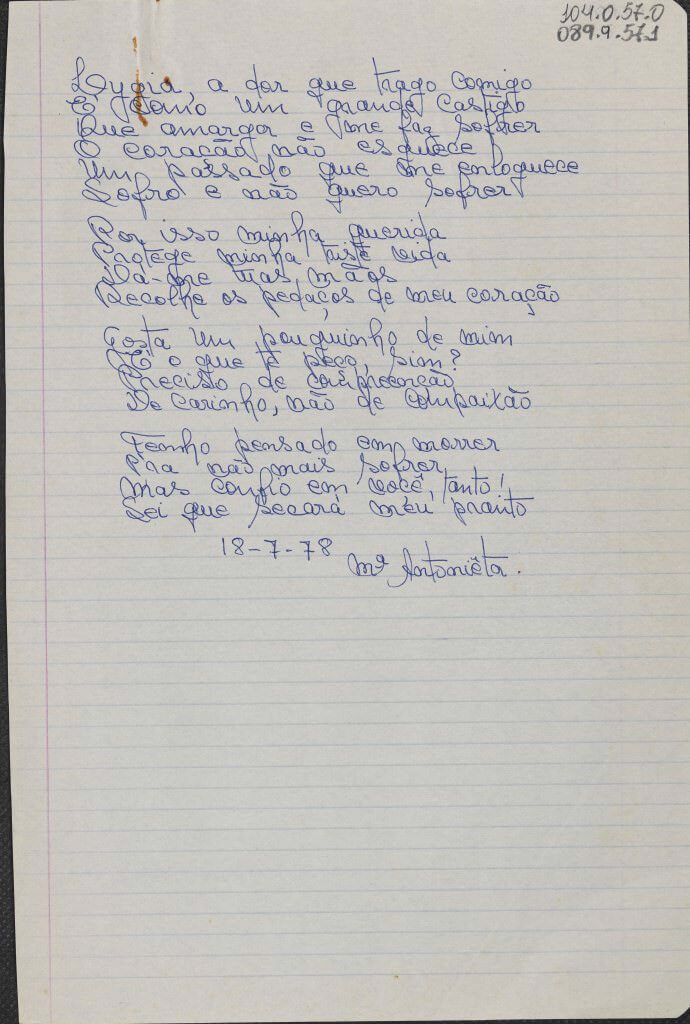 104.0.57.0
089.9.571
Lygia, a dor que trago comigo
É como um grande castigo
Que amarga e me faz sofrer
O coração não esquece
Um passado que me enloquece
Sofro e não quero sofrer
Por isso minha querida
Protege minha triste vida
Dá-me tuas mãos
Recolhe os pedaços de meu coração
Gosta um pouquinho de mim
É o que te peço, sim?
Preciso de compreenção
De carinho, não de compaixão
Tenho pensado em morrer
Pra não mais sofrer
Mas confio em você, tanto!
Sei que secará meu pranto
18-7-78
Mª Antoniêta.